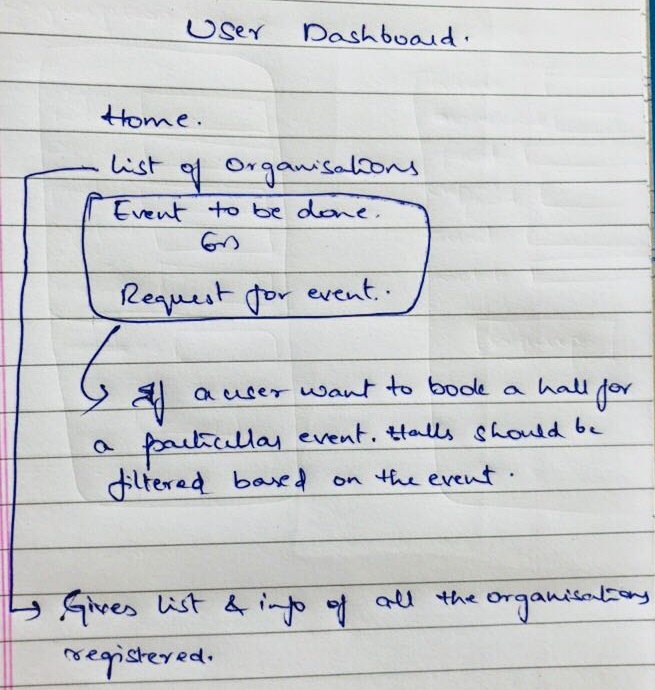 User Dashboard.
Home.
List of Organisations
Event to be done.
Or
Request for event..
If a user want to book a hall for
a particular event. Halls should be
filtered based on the event.
Gives list & info of all the organisations
registered.